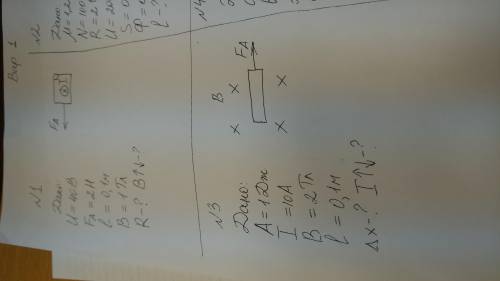 Вар 1
N1
Дано:
U=40В
FA=2Н
l=0,1м
B=1Тл
R-? B↑↓-?
FA
N2
Дано:
S=0
N3
Дано:
A=1Дж
I=10А
B=2Тл
l=0,1м
Δx-? I↑↓-?
B
FA
x x
x x
N4